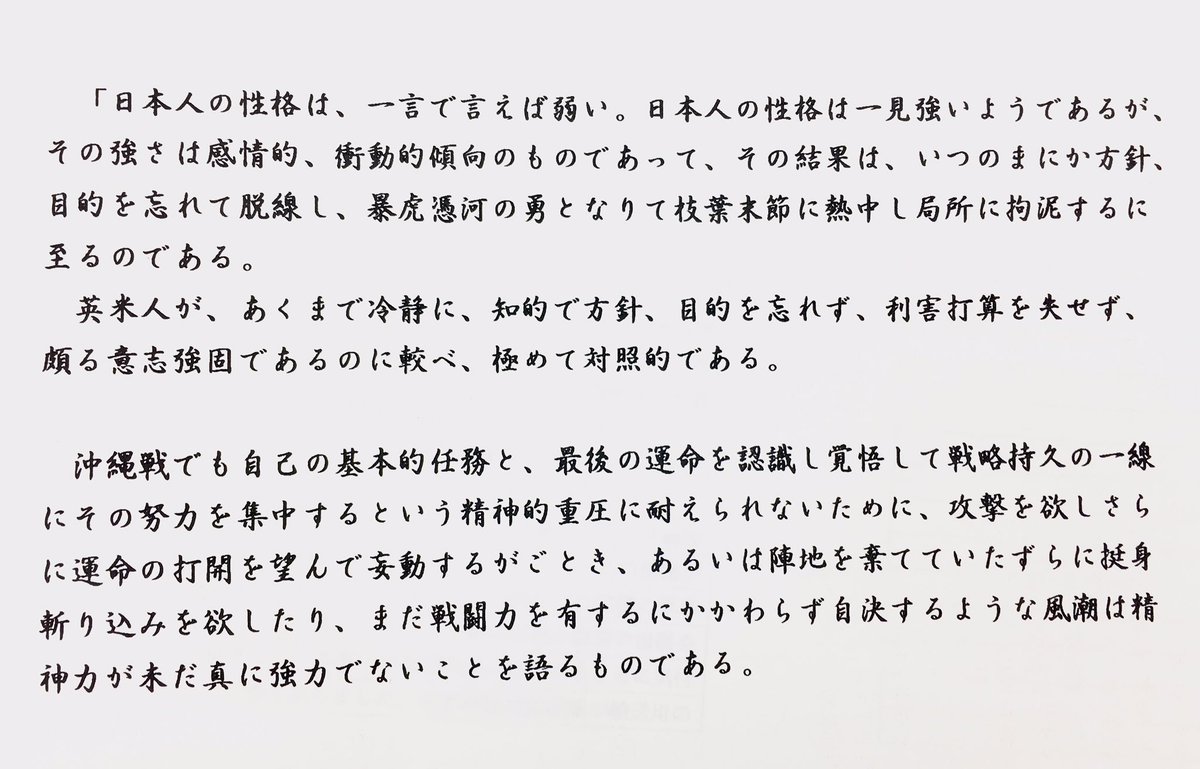 「日本人の性格は、一言で言えば弱い。日本人の性格は一見強いようであるが、
その強さは感情的、衝動的傾向のものであって、その結果は、いつのまにか方針、
目的を忘れて脱線し、暴虎憑河の勇となりて枝葉末節に熱中し局所に拘泥するに
至るのである。
英米人が、あくまで冷静に、知的で方針、目的を忘れず、利害打算を失せず、
頗る意志強固であるのに較べ、極めて対照的である。
沖縄戦でも自己の基本的任務と、最後の運命を認識し覚悟して戦略持久の一線
にその努力を集中するという精神的重圧に耐えられないために、攻撃を欲しさら
に運命の打開を望んで妄動するがごとき、あるいは陣地を棄てていたずらに挺身
斬り込みを欲したり、まだ戦闘力を有するにかかわらず自決するような風潮は精
神力が未だ真に強力でないことを語るものである。